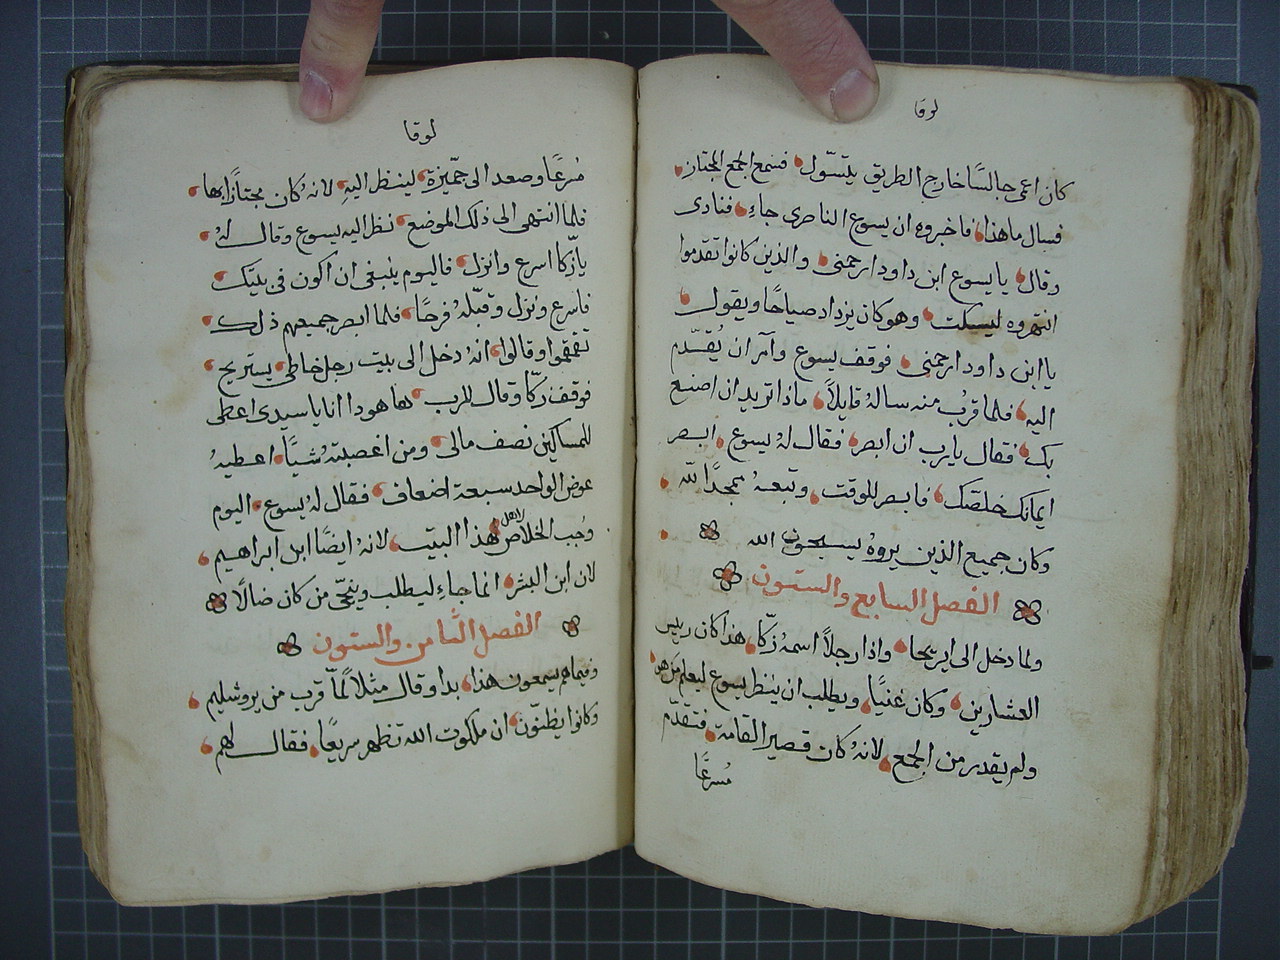 لوقا
كان اعمى جالسًا خارج الطريق يتسّول فسمع الجمع المجتاز
فسال ماهذا فاخبروه ان يسوع الناصرى جاءِ فنادى
وقال يا يسوع ابن داود ارحمنى والذين كانوا تقدموا
انتهروه ليسكت وهو كان يزداد صياحًا ويقول
يا ابن داود ارحمنى فوقف يسوع وآمر ان يُقدّم
اليه فلما قرُب منه سالهُ قايلاً ماذا تريد ان اصنع
بك فقال يارب ان ابصر فقال لهُ يسوع ابصر
ايمانك خلصك فابصر للوقت وتبعهُ ممجدًا لله
وكان جميع الذين يروهُ يسبحون الله
الفصل السابع والستون
ولما دخل الى ايريحا واذا رجلاً اسمهُ زكّا هذا كان رييس
العشارين وكان غنيًا ويطلب ان ينظر يسوع ليعلم من هو
ولم يقدر من الجمع لانهُ كان قصير القامة فتقدّم
مُسرعًا
لوقا
مُسرعًا وصعد الى جمّيزة لينظر اليهِ لانهُ كان مجتازًا بها
فلما انتهى الى ذلك الموضع نظر اليه يسوع وقال لهُ
يا زكّا اسرع وانزل فاليوم ينبغى ان اكون فى بيتك
فاسرع ونزل وقبّلهُ فرحًا فلما ابصر جميعهم ذلك
تقمقموا وقالوا انهُ دخل الى بيت رجل خاطى يستريح
فوقف زكّا وقال للرب ها هودا انا يا سيدى اعطى
للمساكين نصف مالى ومن اغصبتهُ شيًا اعطيهُ
عوض الواحد سبعة اضعاف فقال لهُ يسوع اليوم
وُجب الخلاص لاهل هذا البيت لانهُ ايضًا ابن ابراهيم
لان ابن البشر انما جاءِ ليطلب وينجّى من كان ضالًا
الفصل الثامن والستون
وفيما هم يسمعون هذا بدا وقال مثلاً لمّا قرب من يروشليم
وكانوا يظنّون ان ملكوت الله تظهر سريعًا فقال لهم